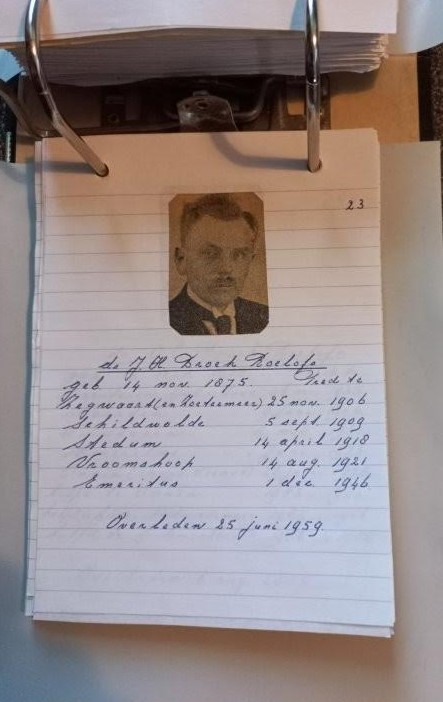 23
ds J. H. Broek Roelofs
geb 14 nov. 1875. Pred te
Zegwaart (en Zoetermeer) 25 nov. 1906
Schildwolde 5 sept. 1909
Stedum 14 april 1918
Vroomshoop 14 aug. 1921
Emeritus 1 dec 1946
Overleden 25 juni 1959.